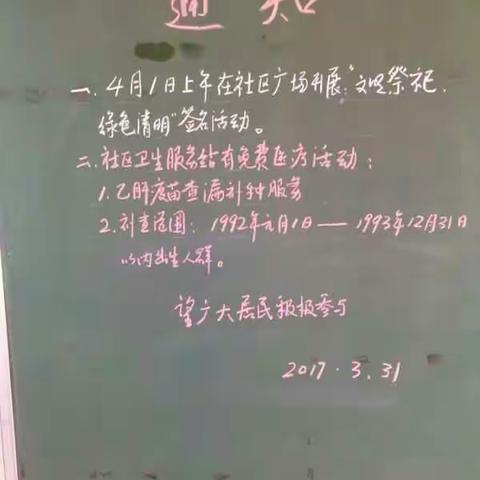 通知
一、4月1日上午在社区广场开展:"文明祭祀,
绿色清明"签名活动。
二、社区卫生服务站有免费医疗活动:
1.乙肝疫苗查漏补种服务
2.补查范围:1992年元月1日——1993年12月31日
以内出生人群。
望广大居民积极参与
2017.3.31